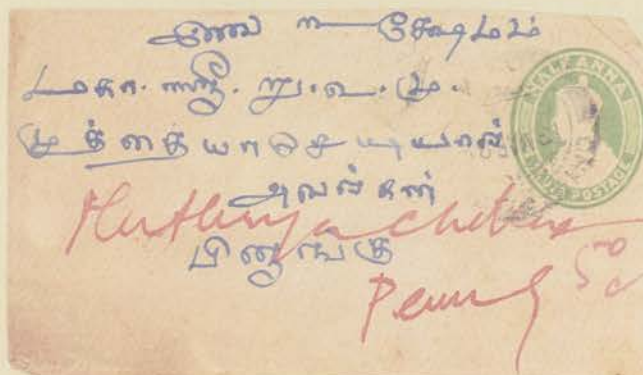 க்ஷேமம்
மகா. ஸ்ரீ. று. வ. மு.
முத்தையா செட்டியார்
அவர்கள்
Muthuya Chettiar
பினாங்கு
Penang
HALF ANNA
INDIA POSTAGE